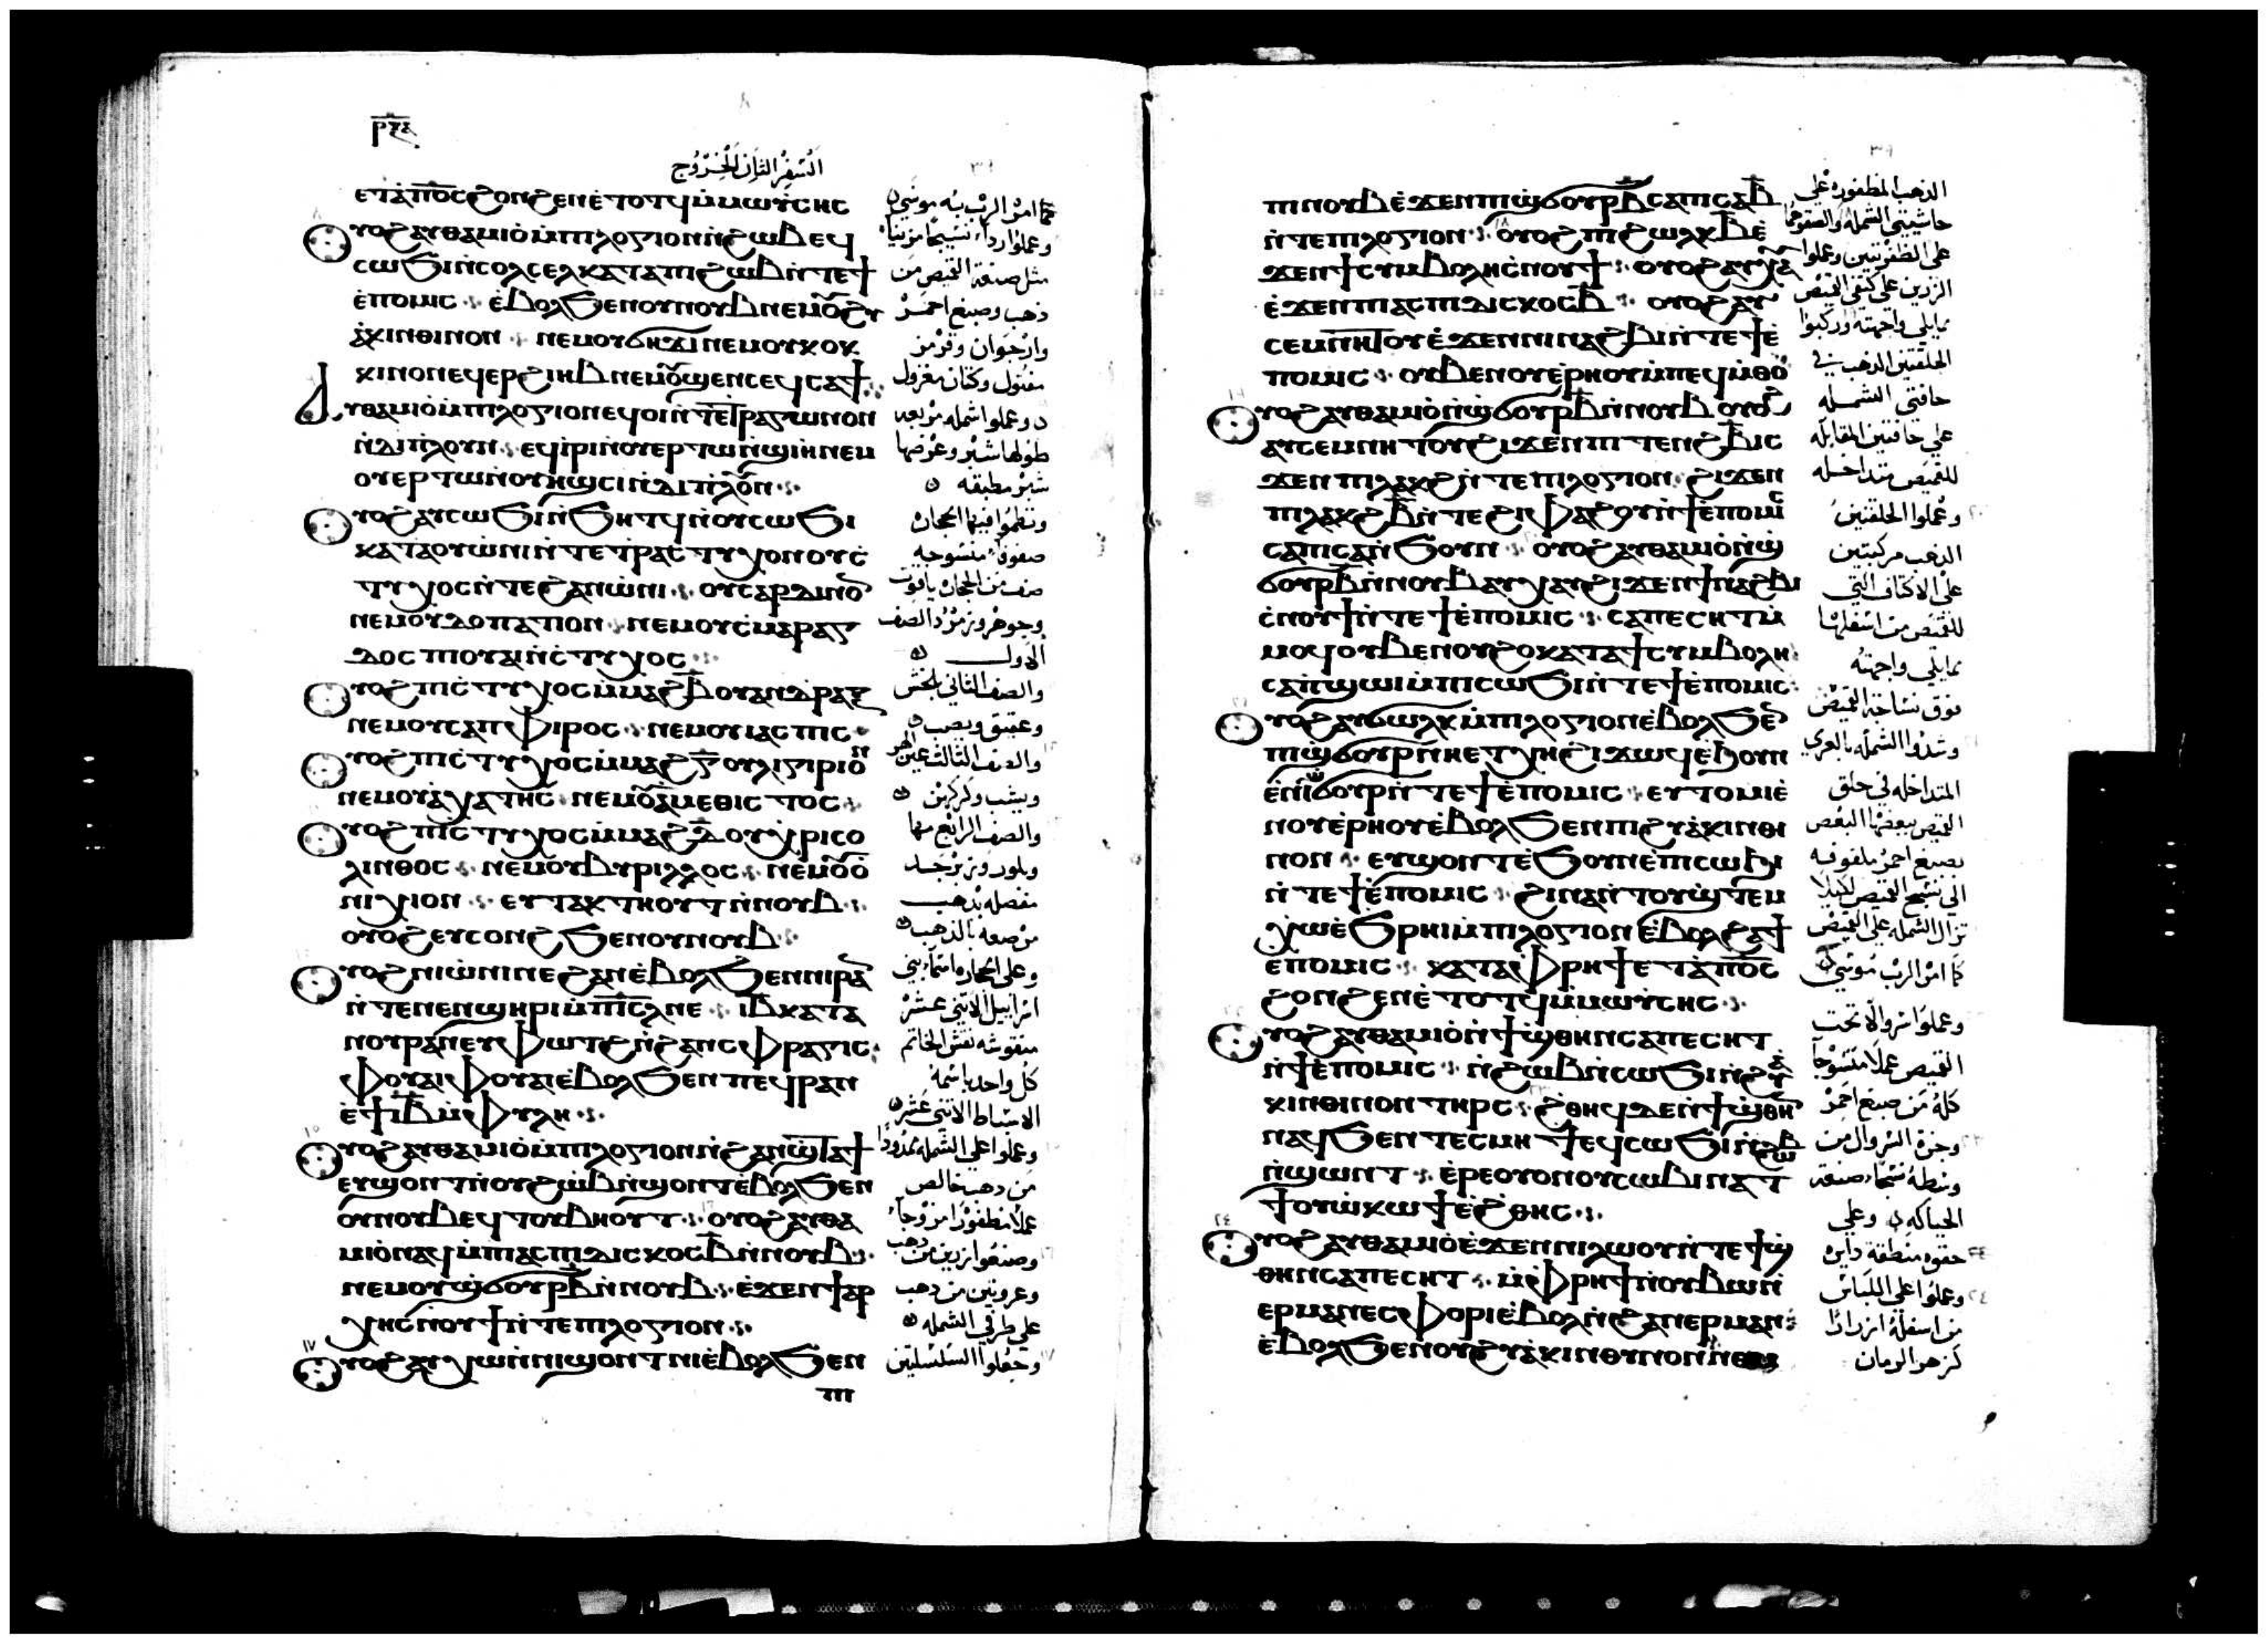 ⲣⲝⲇ
السفر الثاني الخروج
ⲉⲧⲁⲡⲟ̅ⲥ̅ϩⲟⲛϩⲉⲛⲉ̀ⲧⲟⲧϥⲙ̀ⲙⲱⲩ̀ⲥⲏⲥ
ⲟⲩⲟϩⲁⲩⲑⲁⲙⲓⲟ̀ⲙ̀ⲡⲓⲗⲟⲅⲓⲟⲛⲛ̀ϩⲱⲃⲉϥ
ⲥⲱϧⲓⲛ̀ⲥⲟⲗⲥⲉⲗⲕⲁⲧⲁⲡⲓϩⲱⲃⲛ̀ⲧⲉϯ
ⲉ̀ⲡⲟⲙⲓⲥ ⲉ̀ⲃⲟⲗϧⲉⲛⲟⲩⲛⲟⲩⲃⲛⲉⲙⲟⲩϩⲩ
ⲁ̀ⲕⲓⲛⲑⲓⲛⲟⲛ ⲛⲉⲙⲟⲩϭⲏϫⲓⲛⲉⲙⲟⲩⲕⲟⲕ
ⲕⲓⲛⲟⲛⲉϥⲉⲣϩⲓⲏⲃⲛⲉⲙⲟⲩϣⲉⲛⲥⲉϥⲥⲁϯ
ⲁⲩⲑⲁⲙⲓⲟ̀ⲙ̀ⲡⲓⲗⲟⲅⲓⲟⲛⲉϥⲟⲓⲛ̀ⲧⲉⲧⲣⲁⲅⲱⲛⲟⲛ
ⲛ̀ⲇⲓⲡⲗⲟⲩⲛ ⲉϥⲓ̀ⲣⲓⲛ̀ⲟⲩⲉⲣⲧⲱⲛ̀ϣⲓⲏⲛⲉⲙ
ⲟⲩⲉⲣⲧⲱⲛ̀ⲟⲩⲏϣⲥⲓⲛ̀ⲇⲓⲡⲗⲟⲩⲛ
ⲟⲩⲟϩⲁⲩⲥⲱϧⲓⲛ̀ϧⲏⲧϥⲛ̀ⲟⲩⲥⲱϧⲓ
ⲕⲁⲧⲁⲟⲩⲱ̀ⲛⲓⲛ̀ⲧⲉⲧⲣⲁⲥⲧⲩⲭⲟⲛⲟⲩⲥ̀
ⲧⲩⲭⲟⲥⲛ̀ⲧⲉϩⲁⲛⲱ̀ⲛⲓ ⲟⲩⲥⲁⲣⲇⲓⲛⲟⲛ
ⲛⲉⲙⲟⲩⲇⲟⲡⲁⲡⲟⲛ ⲛⲉⲙⲟⲩⲥ̀ⲙⲁⲣⲁⲅ
ⲇⲟⲥⲡⲓⲟⲩⲁⲓⲛ̀ⲥ̀ⲧⲩⲭⲟⲥ
ⲟⲩⲟϩⲡⲓⲥ̀ⲧⲩⲭⲟⲥⲙ̀ⲙⲁϩⲃ̅ⲟⲩⲁⲛⲑⲣⲁⲝ
ⲛⲉⲙⲟⲩⲥⲁⲡⲫⲓⲣⲟⲥ ⲛⲉⲙⲟⲩⲓⲁⲥⲡⲓⲥ
ⲟⲩⲟϩⲡⲓⲥ̀ⲧⲩⲭⲟⲥⲙ̀ⲙⲁϩⲅ̅ⲟⲩⲗⲓⲅⲓⲣⲓⲟⲛ
ⲛⲉⲙⲟⲩⲁ̀ⲭⲁⲧⲏⲥ ⲛⲉⲙⲟⲩⲁ̀ⲙⲉⲑⲓⲥⲧⲟⲥ
ⲟⲩⲟϩⲡⲓⲥ̀ⲧⲩⲭⲟⲥⲙ̀ⲙⲁϩⲇ̅ⲟⲩⲭⲣⲓⲥⲟ
ⲗⲓⲛⲑⲟⲥ ⲛⲉⲙⲟⲩⲃⲩⲣⲓⲗⲗⲟⲥ ⲛⲉⲙⲟⲩⲟ̀
ⲛⲓⲭⲓⲟⲛ ⲉⲩⲧⲁⲕⲧⲏⲟⲩⲧⲛ̀ⲛⲟⲩⲃ
ⲟⲩⲟϩⲉⲩⲥⲟⲛϩϧⲉⲛⲟⲩⲛⲟⲩⲃ
ⲟⲩⲟϩⲛⲓⲱ̀ⲛⲓⲛⲉϩⲁⲛⲉ̀ⲃⲟⲗϧⲉⲛⲛⲓⲣⲁⲛ
ⲛ̀ⲧⲉⲛⲉⲛϣⲏⲣⲓⲙ̀ⲡⲓⲥ̅ⲗ̅ⲛⲉ ⲓ̅ⲃ̅ⲕⲁⲧⲁ
ⲛⲟⲩⲣⲁⲛⲉⲩⲫⲱⲧϩⲛ̀ϩⲁⲛⲥⲫⲣⲁⲅⲓⲥ
ⲫⲟⲩⲁⲓⲫⲟⲩⲁⲓⲉ̀ⲃⲟⲗϧⲉⲛⲡⲉϥⲣⲁⲛ
ⲉ̀ϯⲓ̅ⲃ̅ⲙ̀ⲫⲩⲗⲏ
ⲟⲩⲟϩⲁⲩⲑⲁⲙⲓⲟ̀ⲙ̀ⲡⲓⲗⲟⲅⲓⲟⲛⲛ̀ϩⲁⲛϣⲧⲁϯ
ⲉⲩϣⲟⲛⲧⲛ̀ⲟⲩϩⲱⲃⲛ̀ϣⲟⲛⲧⲉ̀ⲃⲟⲗϧⲉⲛ
ⲟⲩⲛⲟⲩⲃⲉϥⲧⲟⲩⲃⲏⲟⲩⲧ ⲟⲩⲟϩⲁⲩⲑⲁ
ⲙⲓⲟ̀ⲛⲁϥⲙ̀ⲡⲓⲁⲥⲡⲓⲇⲓⲥⲕⲟⲥⲃ̅ⲛ̀ⲛⲟⲩⲃ
ⲛⲉⲙⲟⲩϣ̀ϭⲟⲩⲣⲃ̅ⲛ̀ⲛⲟⲩⲃ ⲉ̀ϫⲉⲛϯⲁⲣ
ⲭⲏⲥ̀ⲛⲟⲩϯⲛ̀ⲧⲉⲡⲓⲗⲟⲅⲓⲟⲛ
ⲟⲩⲟϩⲁⲩⲭⲱⲛ̀ⲛⲓϣⲟⲛⲧⲛⲓⲉ̀ⲃⲟⲗϧⲉⲛ
ⲡⲓ
كما امر الرب به موسى
وعملوا رداء نسيجًا مزينًا
مثل صنعة القميص من
ذهب وصبغ احمر
وارجوان وقرمز
مفتول وكتان مغزول
وعملوا اشمله مربعه
طولها شبر وعرضها
شبر مطبقه
ونظموا فيها الحجاره
صفوفا منسوجه
صف من الحجاره ياقوت
وجوهر وزمرد الصف
الاول
والصف الثاني بلخش
وعقيق ويصب
والصف الثالث عين الهر
ويشب وكركهن
والصف الرابع مها
وبلور وزبرجد
مفصله بذهب
مرصعه بالذهب
وعلى الحجاره اسماء بني
اسراييل الاثني عشر
منقوشه نقش الخاتم
كل واحد باسمه
الاسباط الاثني عشر
وعملوا على الشمله
من ذهب خالص
عملا مظفورًا مزوجا
وصنعوا زرين من ذهب
وعروتين من ذهب
على طرفي الشمله
وجعلوا السلسلتين
ⲡⲓⲛⲟⲩⲃⲉ̀ϫⲉⲛⲡⲓϣ̀ϭⲟⲩⲣⲃ̅ⲥⲁⲡⲓⲥⲁⲃ̅
ⲛ̀ⲧⲉⲡⲓⲗⲟⲅⲓⲟⲛ ⲟⲩⲟϩⲡⲓϩⲱⲗⲕⲃ̅ⲉ̀
ϫⲉⲛϯⲥⲩⲙⲃⲟⲗⲏⲥ̀ⲛⲟⲩϯ ⲟⲩⲟϩⲁⲩⲭⲁ
ⲉ̀ϫⲉⲛⲡⲓⲁⲥⲡⲓⲇⲓⲥⲕⲟⲥⲃ̅ ⲟⲩⲟϩⲁⲩ
ⲥⲉⲙⲛⲏⲧⲟⲩⲉ̀ϫⲉⲛⲛⲓⲛⲁϩⲃⲓⲛ̀ⲧⲉϯⲉ̀
ⲡⲟⲙⲓⲥ ⲟⲩⲃⲉⲛⲟⲩⲉ̀ⲣⲏⲟⲩⲙ̀ⲡⲉϥⲙ̀ⲑⲟ
ⲟⲩⲟϩⲁⲩⲑⲁⲙⲓⲟ̀ⲛ̀ϣ̀ϭⲟⲩⲣⲃ̅ⲛ̀ⲛⲟⲩⲃ ⲟⲩⲟϩ
ⲁⲩⲥⲉⲙⲛⲏⲧⲟⲩϩⲓϫⲉⲛⲡⲓⲧⲉⲛϩⲃ̅ⲓⲥ
ϫⲉⲛⲡⲓⲗⲁⲕϩⲛ̀ⲧⲉⲡⲓⲗⲟⲅⲓⲟⲛ ϩⲓϫⲉⲛ
ⲡⲓⲗⲁⲕϩⲃ̅ⲛ̀ⲧⲉϩⲓⲫⲁϩⲟⲩⲛ̀ϯⲉ̀ⲡⲟⲙⲓⲥ
ⲥⲁⲡⲓⲥⲁⲛ̀ϧⲟⲩⲛ ⲟⲩⲟϩⲁⲩⲑⲁⲙⲓⲟ̀ⲛ̀ϣ̀
ϭⲟⲩⲣⲃ̅ⲛ̀ⲛⲟⲩⲃⲁⲩⲭⲁⲩϩⲓϫⲉⲛϯⲛⲁϩⲃⲓ
ⲥ̀ⲛⲟⲩϯⲛ̀ⲧⲉϯⲉ̀ⲡⲟⲙⲓⲥ ⲥⲁⲡⲉⲥⲏⲧⲙ̀
ⲙⲟϥⲟⲩⲃⲉⲛⲟⲩϩⲟⲕⲁⲧⲁϯⲥⲩⲙⲃⲟⲗⲏ
ⲥⲁⲡ̀ϣⲱⲓⲙ̀ⲡⲓⲥⲱϧⲓⲛ̀ⲧⲉϯⲉ̀ⲡⲟⲙⲓⲥ
ⲟⲩⲟϩⲁⲩϭⲱⲗⲕⲙ̀ⲡⲓⲗⲟⲅⲓⲟⲛⲉ̀ⲃⲟⲗϧⲉⲛ
ⲡⲓϣ̀ϭⲟⲩⲣⲛ̀ⲏⲉⲧⲭⲏϩⲓϫⲱϥⲉ̀ϧⲟⲩⲛ
ⲉ̀ⲛⲓϣ̀ϭⲟⲩⲣⲛ̀ⲧⲉϯⲉ̀ⲡⲟⲙⲓⲥ ⲉⲩⲧⲟⲙⲓⲉ̀
ⲛⲟⲩⲉ̀ⲣⲏⲟⲩⲉ̀ⲃⲟⲗϧⲉⲛⲡⲓϩⲩⲁ̀ⲕⲓⲛⲑⲓ
ⲛⲟⲛ ⲉⲩϣⲟⲛⲧⲉ̀ϧⲟⲩⲛⲉ̀ⲡⲓⲥⲱϧⲓ
ⲛ̀ⲧⲉϯⲉ̀ⲡⲟⲙⲓⲥ ϩⲓⲛⲁⲛ̀ⲧⲟⲩϣ̀ⲧⲉⲙ
ⲭⲱⲉ̀ϧⲣⲏⲓⲙ̀ⲡⲓⲗⲟⲅⲓⲟⲛⲉ̀ⲃⲟⲗϩⲁϯ
ⲉ̀ⲡⲟⲙⲓⲥ ⲕⲁⲧⲁⲫⲣⲏϯⲉⲧⲁⲡⲟ̅ⲥ̅
ϩⲟⲛϩⲉⲛⲉ̀ⲧⲟⲧϥⲙ̀ⲙⲱⲩ̀ⲥⲏⲥ
ⲟⲩⲟϩⲁⲩⲑⲁⲙⲓⲟ̀ⲛ̀ϯϣ̀ⲑⲏⲛⲥⲁⲡⲉⲥⲏⲧ
ⲛ̀ϯⲉ̀ⲡⲟⲙⲓⲥ ⲛ̀ϩⲱⲃⲛ̀ⲥⲱϧⲓⲛ̀ϩⲩⲁ̀
ⲕⲓⲛⲑⲓⲛⲟⲛⲧⲏⲣⲥ ϩ̀ⲑⲏϥⲇⲉⲛ̀ϯϣ̀ⲑⲏⲛ
ⲛⲁϥϧⲉⲛⲧⲉⲥⲙⲏϯⲉϥⲥⲱϧⲓⲛ̀ϩⲱⲃ
ⲛ̀ϣⲱⲛⲧ ⲉ̀ⲣⲉⲟⲩⲟⲛⲟⲩⲥⲱⲃⲓⲛⲁⲧ
ϯⲟⲩⲱ̀ⲕⲱϯⲉ̀ϩ̀ⲑⲏⲥ
ⲟⲩⲟϩⲁⲩⲑⲁⲙⲓⲟ̀ⲉ̀ϫⲉⲛⲛⲓⲗⲱⲟⲩⲛ̀ⲧⲉϯϣ̀
ⲑⲏⲛⲥⲁⲡⲉⲥⲏⲧ ⲙ̀ⲫⲣⲏϯⲛ̀ⲟⲩⲃⲱⲛ̀
ⲉⲣⲙⲁⲛⲉⲥⲫⲟⲣⲓⲉ̀ⲃⲟⲗⲛ̀ϩⲁⲛⲉⲣⲙⲁⲛ
ⲉ̀ⲃⲟⲗϧⲉⲛⲟⲩϩⲩⲁ̀ⲕⲓⲛⲑⲩⲛⲟⲛⲛⲉⲙ
الذهب المظفوره على
حاشيتي الشمله
على الظفرتين وعملوا
الزرين على كتفي القميص
مما يلي واجهته وركبوا
الحلقتين الذهب في
حافتي الشمله
على حافتين المقابله
للقميص متداخله
وعملوا الحلقتين
الذهب مركبتين
على الاكتاف التي
للقميص من اسفلها
مما يلي واجهته
فوق نساجة القميص
وشدوا الشمله بالعري
المتداخله في حلق
القميص بعضها البعض
بصبغ احمر ملفوفه
الى نسج القميص لكيلا
تزال الشمله على القميص
كما امر الرب موسى
وعملوا سروالا تحت
القميص عملا منسوجا
كله من صبغ احمر
وجزة السروال من
وسطه صنعة
الحياكه وعلى
حقوه منطقة دايره
وعملوا على اللباس
من اسفله ازرارا
كزهر الرمان